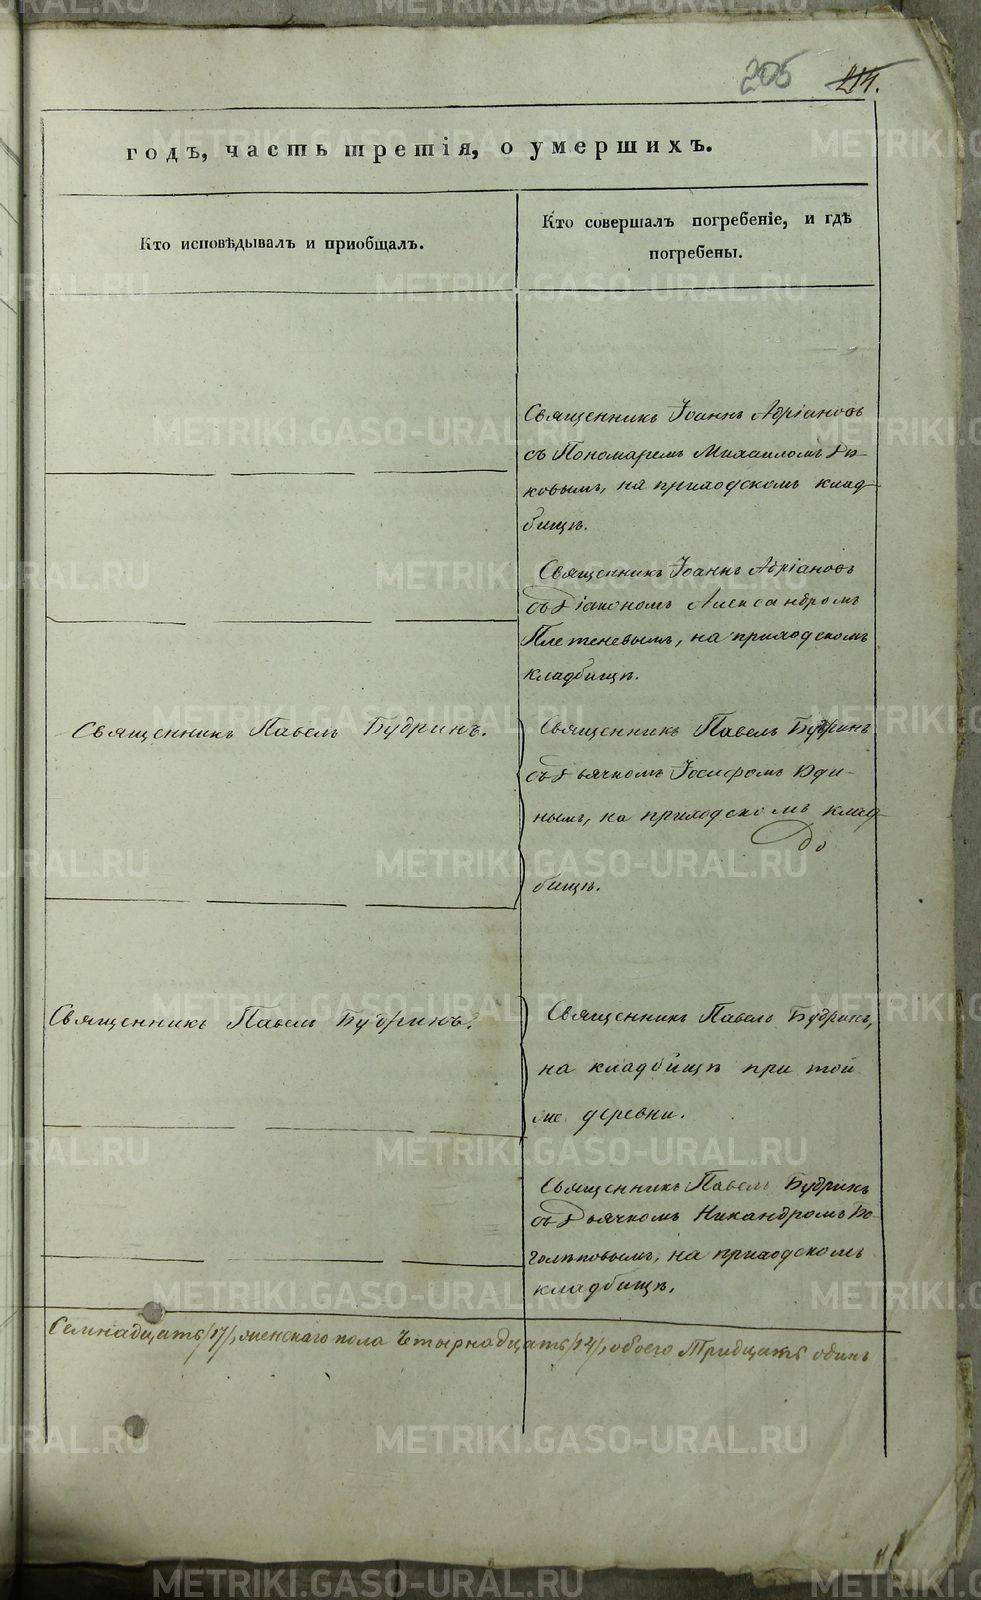 205 214.
годъ, часть третія, о умершихъ.
Кто исповѣдывалъ и пріобщалъ.
Кто совершалъ погребеніе, и гдѣ
погребены.
Священникъ Іоаннъ Адріановъ
съ Пономаремъ Михаиломъ Ды-
ковымъ, на приходскомъ клад-
бищѣ.
Священникъ Іоаннъ Адріановъ
съ Діакономъ Александромъ
Плетеневымъ, на приходскомъ
кладбищѣ.
Священникъ Павелъ Будринъ.
Священникъ Павелъ Будринъ
съ Дьячкомъ Іосифомъ Юди-
нымъ, на приходскомъ клад-
до
бищѣ.
Священникъ Павелъ Будринъ.
Священникъ Павелъ Будринъ,
на кладбищѣ при той
же деревни.
Священникъ Павелъ Будринъ
съ Дьячкомъ Никандромъ Бо-
голѣповымъ, на приходскомъ
кладбищѣ.
Семнадцать /17/, женскаго пола Четырнадцать /14/, обоего Тридцать одинъ
METRIKI.GASO-URAL.RU